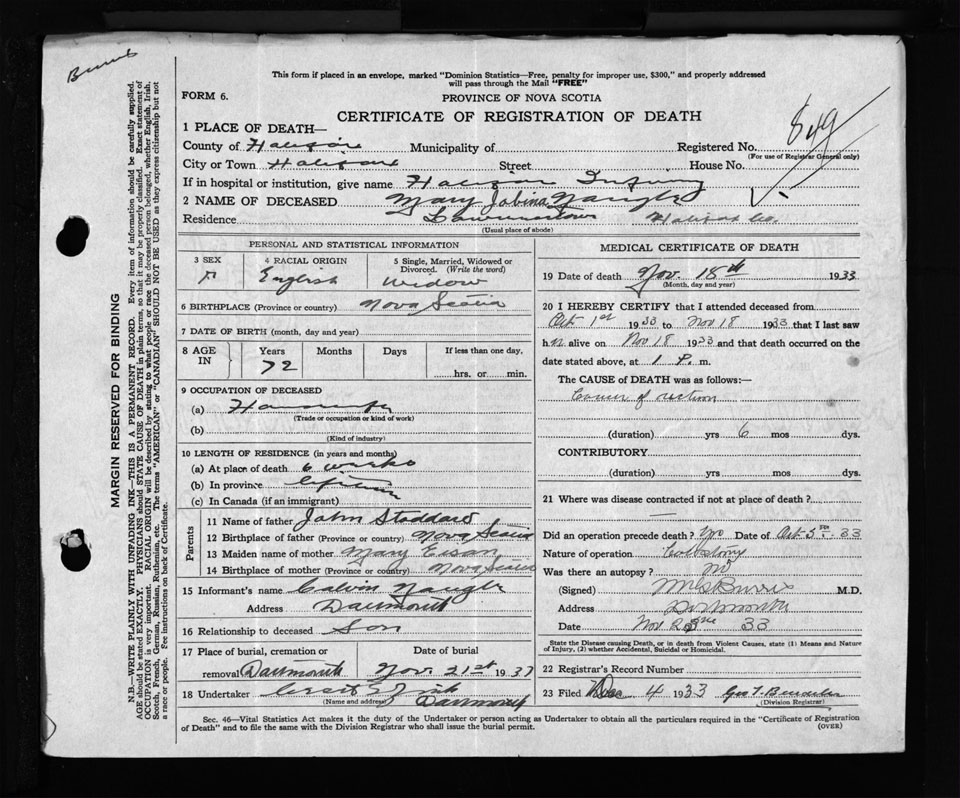 This form if placed in an envelope, marked "Dominion Statistics—Free, penalty for improper use, $300," and properly addressed
will pass through the Mail "FREE"
FORM 6.
PROVINCE OF NOVA SCOTIA
CERTIFICATE OF REGISTRATION OF DEATH
849
1 PLACE OF DEATH—
County of Halifax Municipality of Registered No.
(For use of Registrar General only)
City or Town Halifax Street House No.
If in hospital or institution, give name Halifax Infirmary
2 NAME OF DECEASED Mary Jobina Naugler
Residence Lawrencetown Halifax Co.
(Usual place of abode)
MARGIN RESERVED FOR BINDING
N.B.—WRITE PLAINLY WITH UNFADING INK—THIS IS A PERMANENT RECORD. Every item of information should be carefully supplied.
AGE should be stated EXACTLY. PHYSICIANS should STATE CAUSE OF DEATH in plain terms, so that it may be properly classified. Exact statement of
OCCUPATION is very important. RACIAL ORIGIN will be described by stating to what people or race the deceased person belonged, whether English, Irish,
Scotch, French, German, Russian, Ruthenian, etc. The terms "AMERICAN" or "CANADIAN" SHOULD NOT BE USED as they express citizenship but not
a race or people. Fee instructions on back of Certificate.
PERSONAL AND STATISTICAL INFORMATION
3 SEX F
4 RACIAL ORIGIN English
5 Single, Married, Widowed or
Divorced. (Write the word)
Widow
6 BIRTHPLACE (Province or country) Nova Scotia
7 DATE OF BIRTH (month, day and year)
8 AGE IN Years Months Days If less than one day,
72 hrs. or min.
9 OCCUPATION OF DECEASED
(a) Housewife
(Trade or occupation or kind of work)
(b)
(Kind of industry)
10 LENGTH OF RESIDENCE (in years and months)
(a) At place of death 6 weeks
(b) In province Lifetime
(c) In Canada (if an immigrant)
Parents
11 Name of father John Stoddard
12 Birthplace of father (Province or country) Nova Scotia
13 Maiden name of mother Mary Eisan
14 Birthplace of mother (Province or country) Nova Scotia
15 Informant's name Calvin Naugler
Address Dartmouth
16 Relationship to deceased Son
17 Place of burial, cremation or Date of burial
removal Dartmouth Nov. 21st 1933
18 Undertaker
(Name and address) Dartmouth
MEDICAL CERTIFICATE OF DEATH
19 Date of death Nov. 18th 1933
(Month, day and year)
20 I HEREBY CERTIFY that I attended deceased from
Oct 1st 1933 to Nov 18 1933 that I last saw
h alive on Nov 18 1933 and that death occurred on the
date stated above, at 1 P. m.
The CAUSE OF DEATH was as follows:—
Cancer of rectum
(duration) yrs 6 mos dys.
CONTRIBUTORY
(duration) yrs. mos. dys.
21 Where was disease contracted if not at place of death?
—
Did an operation precede death? Yes Date of Oct. 5th 33
Nature of operation Colostomy
Was there an autopsy? no
(Signed) M.D.
Address Dartmouth
Date Nov 33
State the Disease causing Death, or in death from Violent Causes, state (1) Means and Nature
of Injury, (2) whether Accidental, Suicidal or Homicidal.
22 Registrar's Record Number
23 Filed Dec 4 1933 Geo T.
(Division Registrar)
Sec. 46—Vital Statistics Act makes it the duty of the Undertaker or person acting as Undertaker to obtain all the particulars required in the "Certificate of Registration
of Death" and to file the same with the Division Registrar who shall issue the burial permit. (OVER)